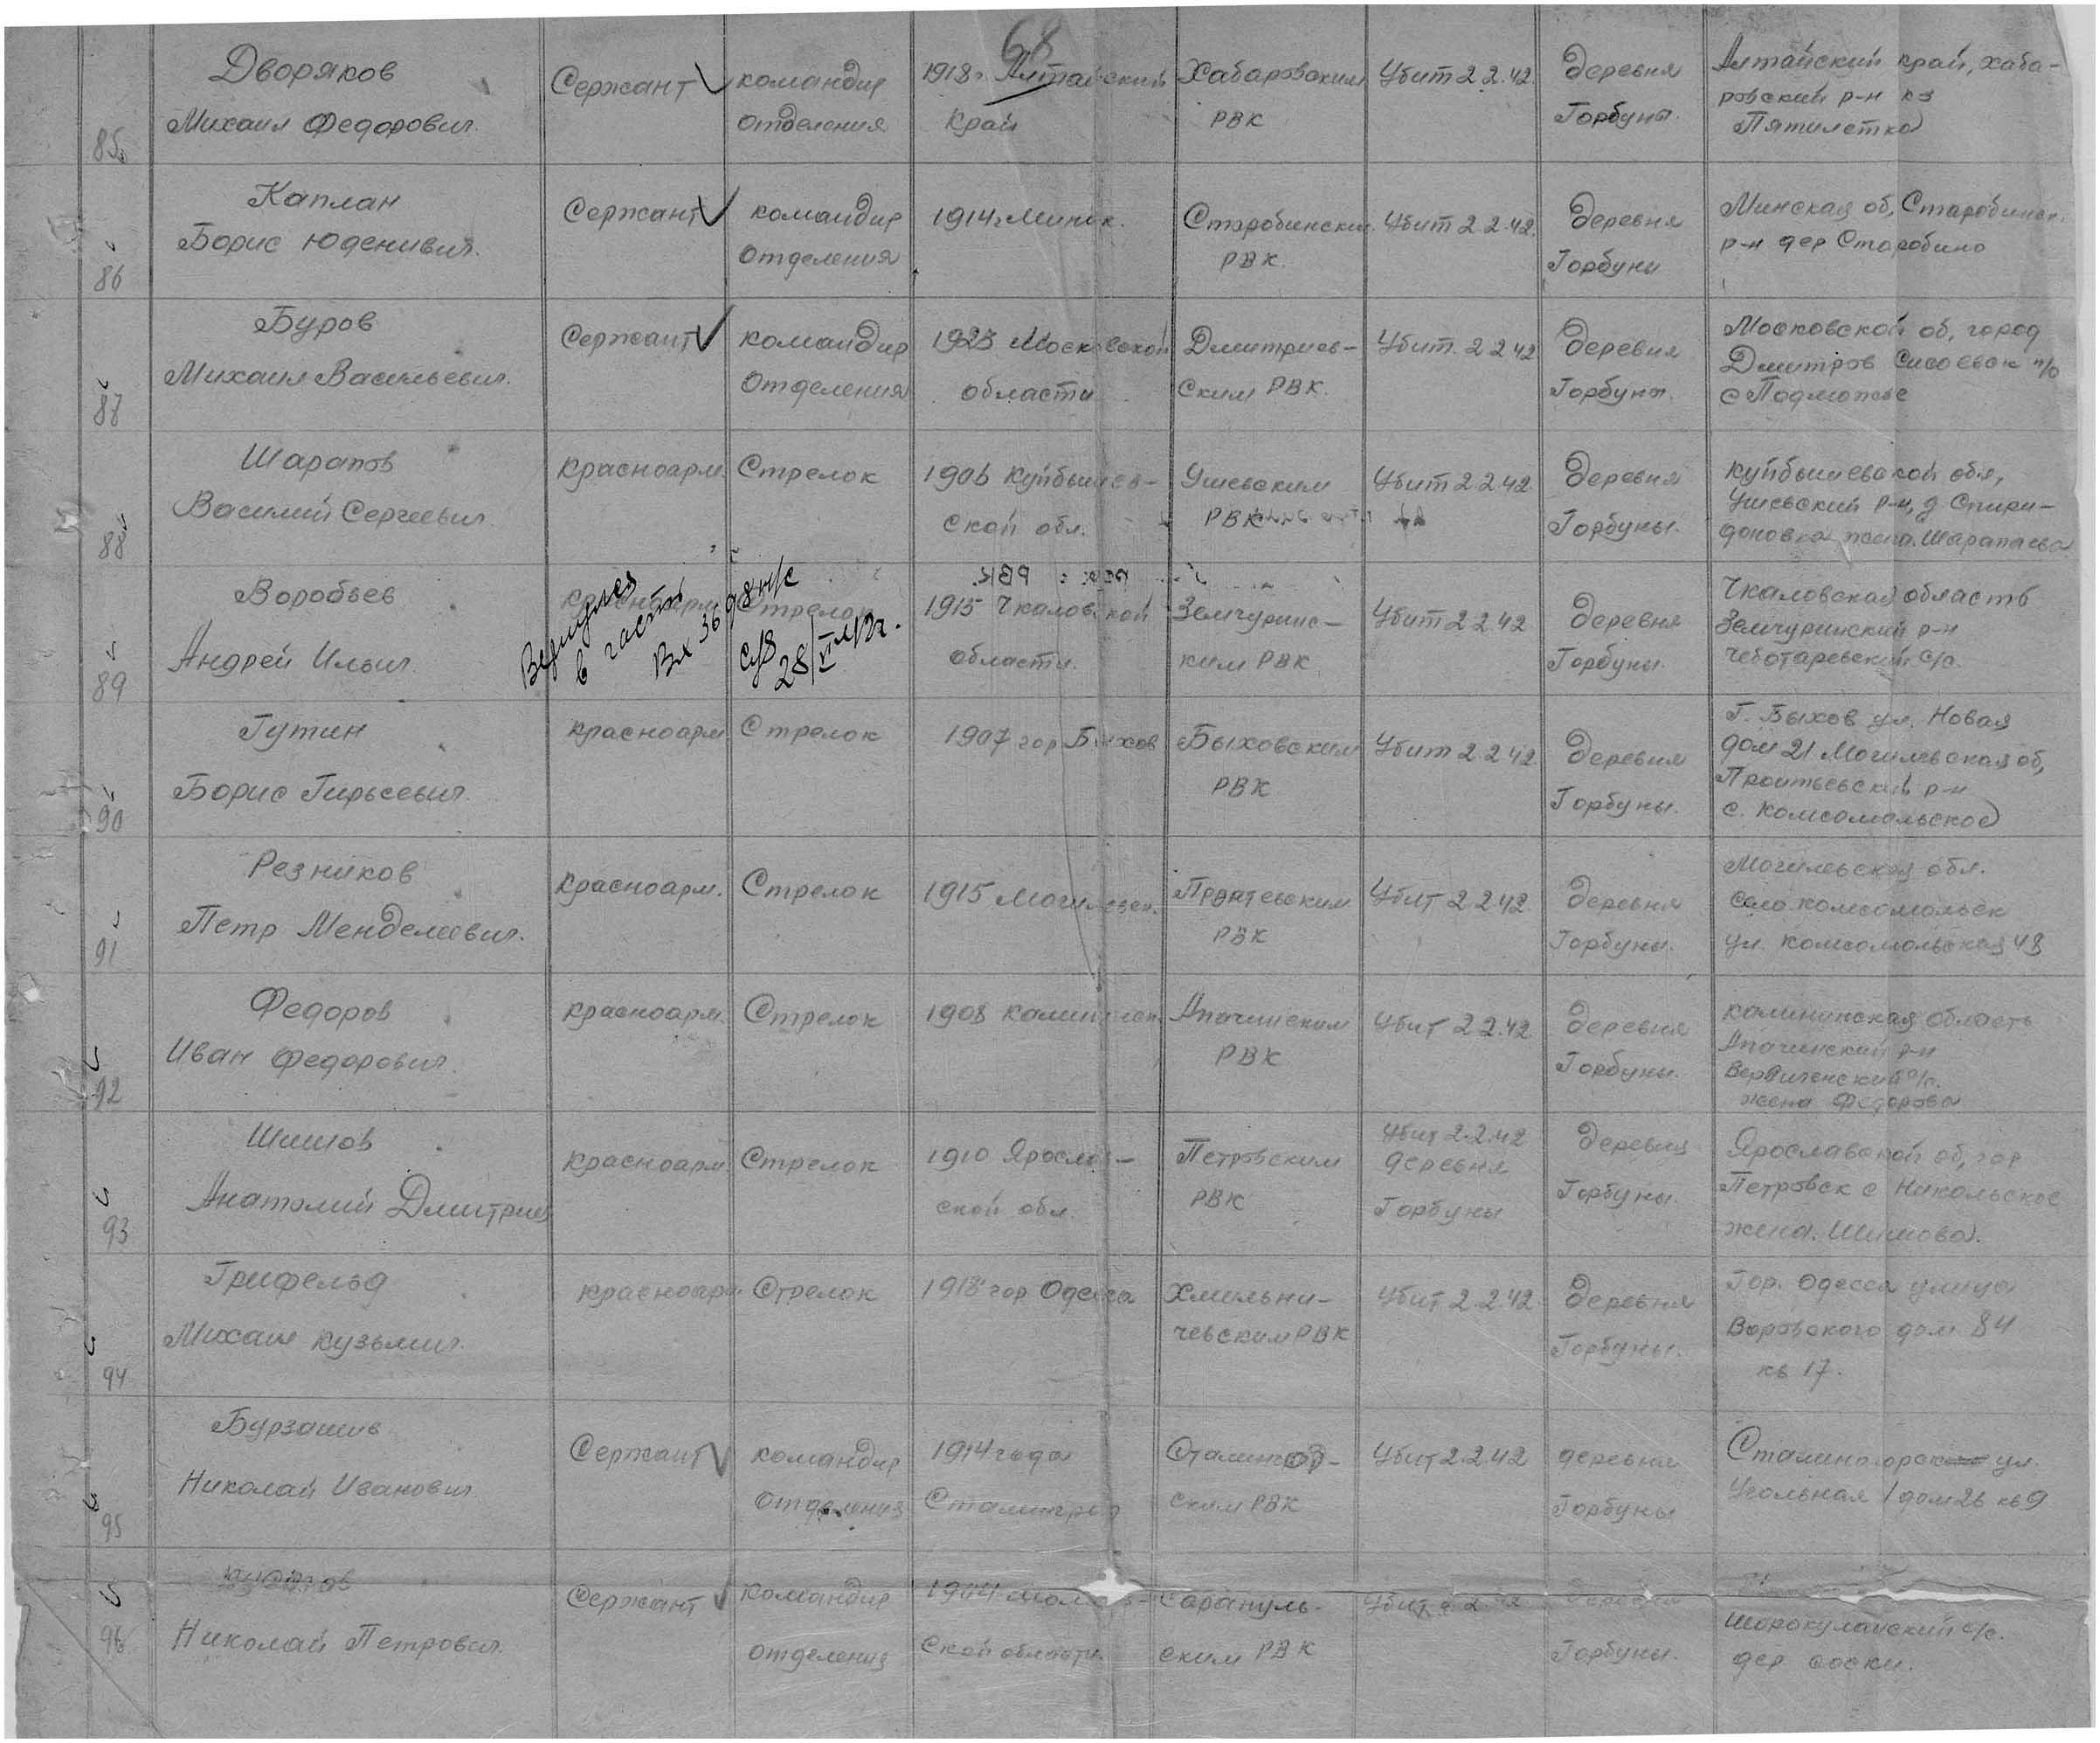 68
Дворяков
Михаил Федорович.
85
Сержант
командир
отделения
1918г Алтайский
Край
Хабаровским
РВК
Убит 2.2.42
деревня
Горбуны.
Алтайский край, хаба-
ровский р-н кз
Пятилетка
Каплан
Борис Юденивич.
86
Сержант
командир
отделения
1914г Минск.
Старобинским
РВК.
Убит 2.2.42.
деревня
Горбуни
Минская об, Старобинск.
р-н дер Старобино
Буров
Михаил Васильевич.
87
Сержант
командир
отделения
1923 Московской
области
Дмитриев-
ским РВК.
Убит. 2 2 42
деревня
Горбуны.
Московской об, город
Дмитров п/о
с Подмопсье
Шарапов
Василий Сергеевич
88
красноарм.
Стрелок
1906 Куйбышев-
ской обл.
РВК
Убит 2 2.42.
деревня
Горбуны.
Куйбышевской обл,
р-н, д Спири-
доновка жена.
Воробьев
Андрей Ильич.
89
красноарм
Стрелок
Вернулся
в часть
Вх 3698 н/с
28/VI
1915 Чкаловской
области.
Земчуринс-
ким РВК
Убит 2 2 42
деревня
Горбуны.
Чкаловская область
Земчуринский р-н
чеботаревский с/с.
Гутин
Борис Гирьсевич.
90
красноарм
Стрелок
1907 гор Быхов
Быховским
РВК
Убит 2 2 42
деревня
Горбуны.
Г. Быхов ул. Новая
дом 21 Могилевская об,
р-н
с. Комсомольское
Резников
Петр Менделеевич.
91
красноарм.
Стрелок
1915 Могилевск.
РВК
Убит 2 2 42
деревня
Горбуны.
Могилевская обл.
село комсомольск
ул. Комсомольская 48
Федоров
Иван Федорович.
92
красноарм.
Стрелок
1908 Калининск
Апочинским
РВК
Убит 2 2.42
деревня
Горбуны.
калининская область
Апочинский р-н
с/с.
жена Федорова
Шишов
Анатолий Дмитриев
93
красноарм
Стрелок
1910 Ярослав-
ской обл.
Петровским
РВК
Убит 2.2.42
деревня
Горбуны
деревня
Горбуны.
Ярославской об, гор
Петровск с Никольское
жена. Шишова.
Грифельд
Михаил Кузьмич.
94
красноарм
Стрелок
1918 гор Одесса
Хмильни-
чевским РВК
Убит 2.2.42
деревня
Горбуны.
Гор. Одесса улица
Воровского дом 84
кв 17.
Бурзашив
Николай Иванович
95
Сержант
командир
отделения
1914 года
Сталинград
ским РВК
Убит 2.2.42
деревня
Горбуны
Сталиногорск ул.
Угольная 1 дом 26 кв 9
Николай Петрович.
96
Сержант
командир
отделения
ской области.
Сарапуль-
ским РВК
Убит 2 2 42
деревня
Горбуны.
с/с.
дер соски.